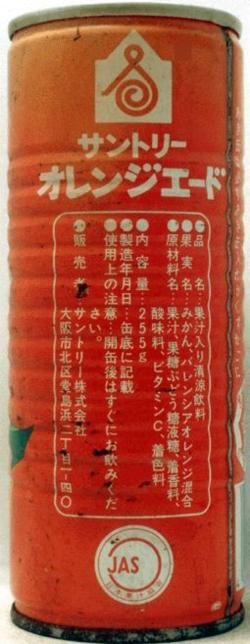 サントリー
オレンジエード
●品名…果汁入り清涼飲料
●果実名…みかん、バレンシアオレンジ混合
●原材料名…果汁、果糖ぶどう糖液糖、着香料、
酸味料、ビタミンC、着色料
●内容量…255g
●製造年月日…缶底に記載
●使用上の注意…開缶後はすぐにお飲みくだ
さい。
●販売者 サントリー株式会社
大阪市北区堂島浜二丁目一-四〇
JAS
日本果汁協会